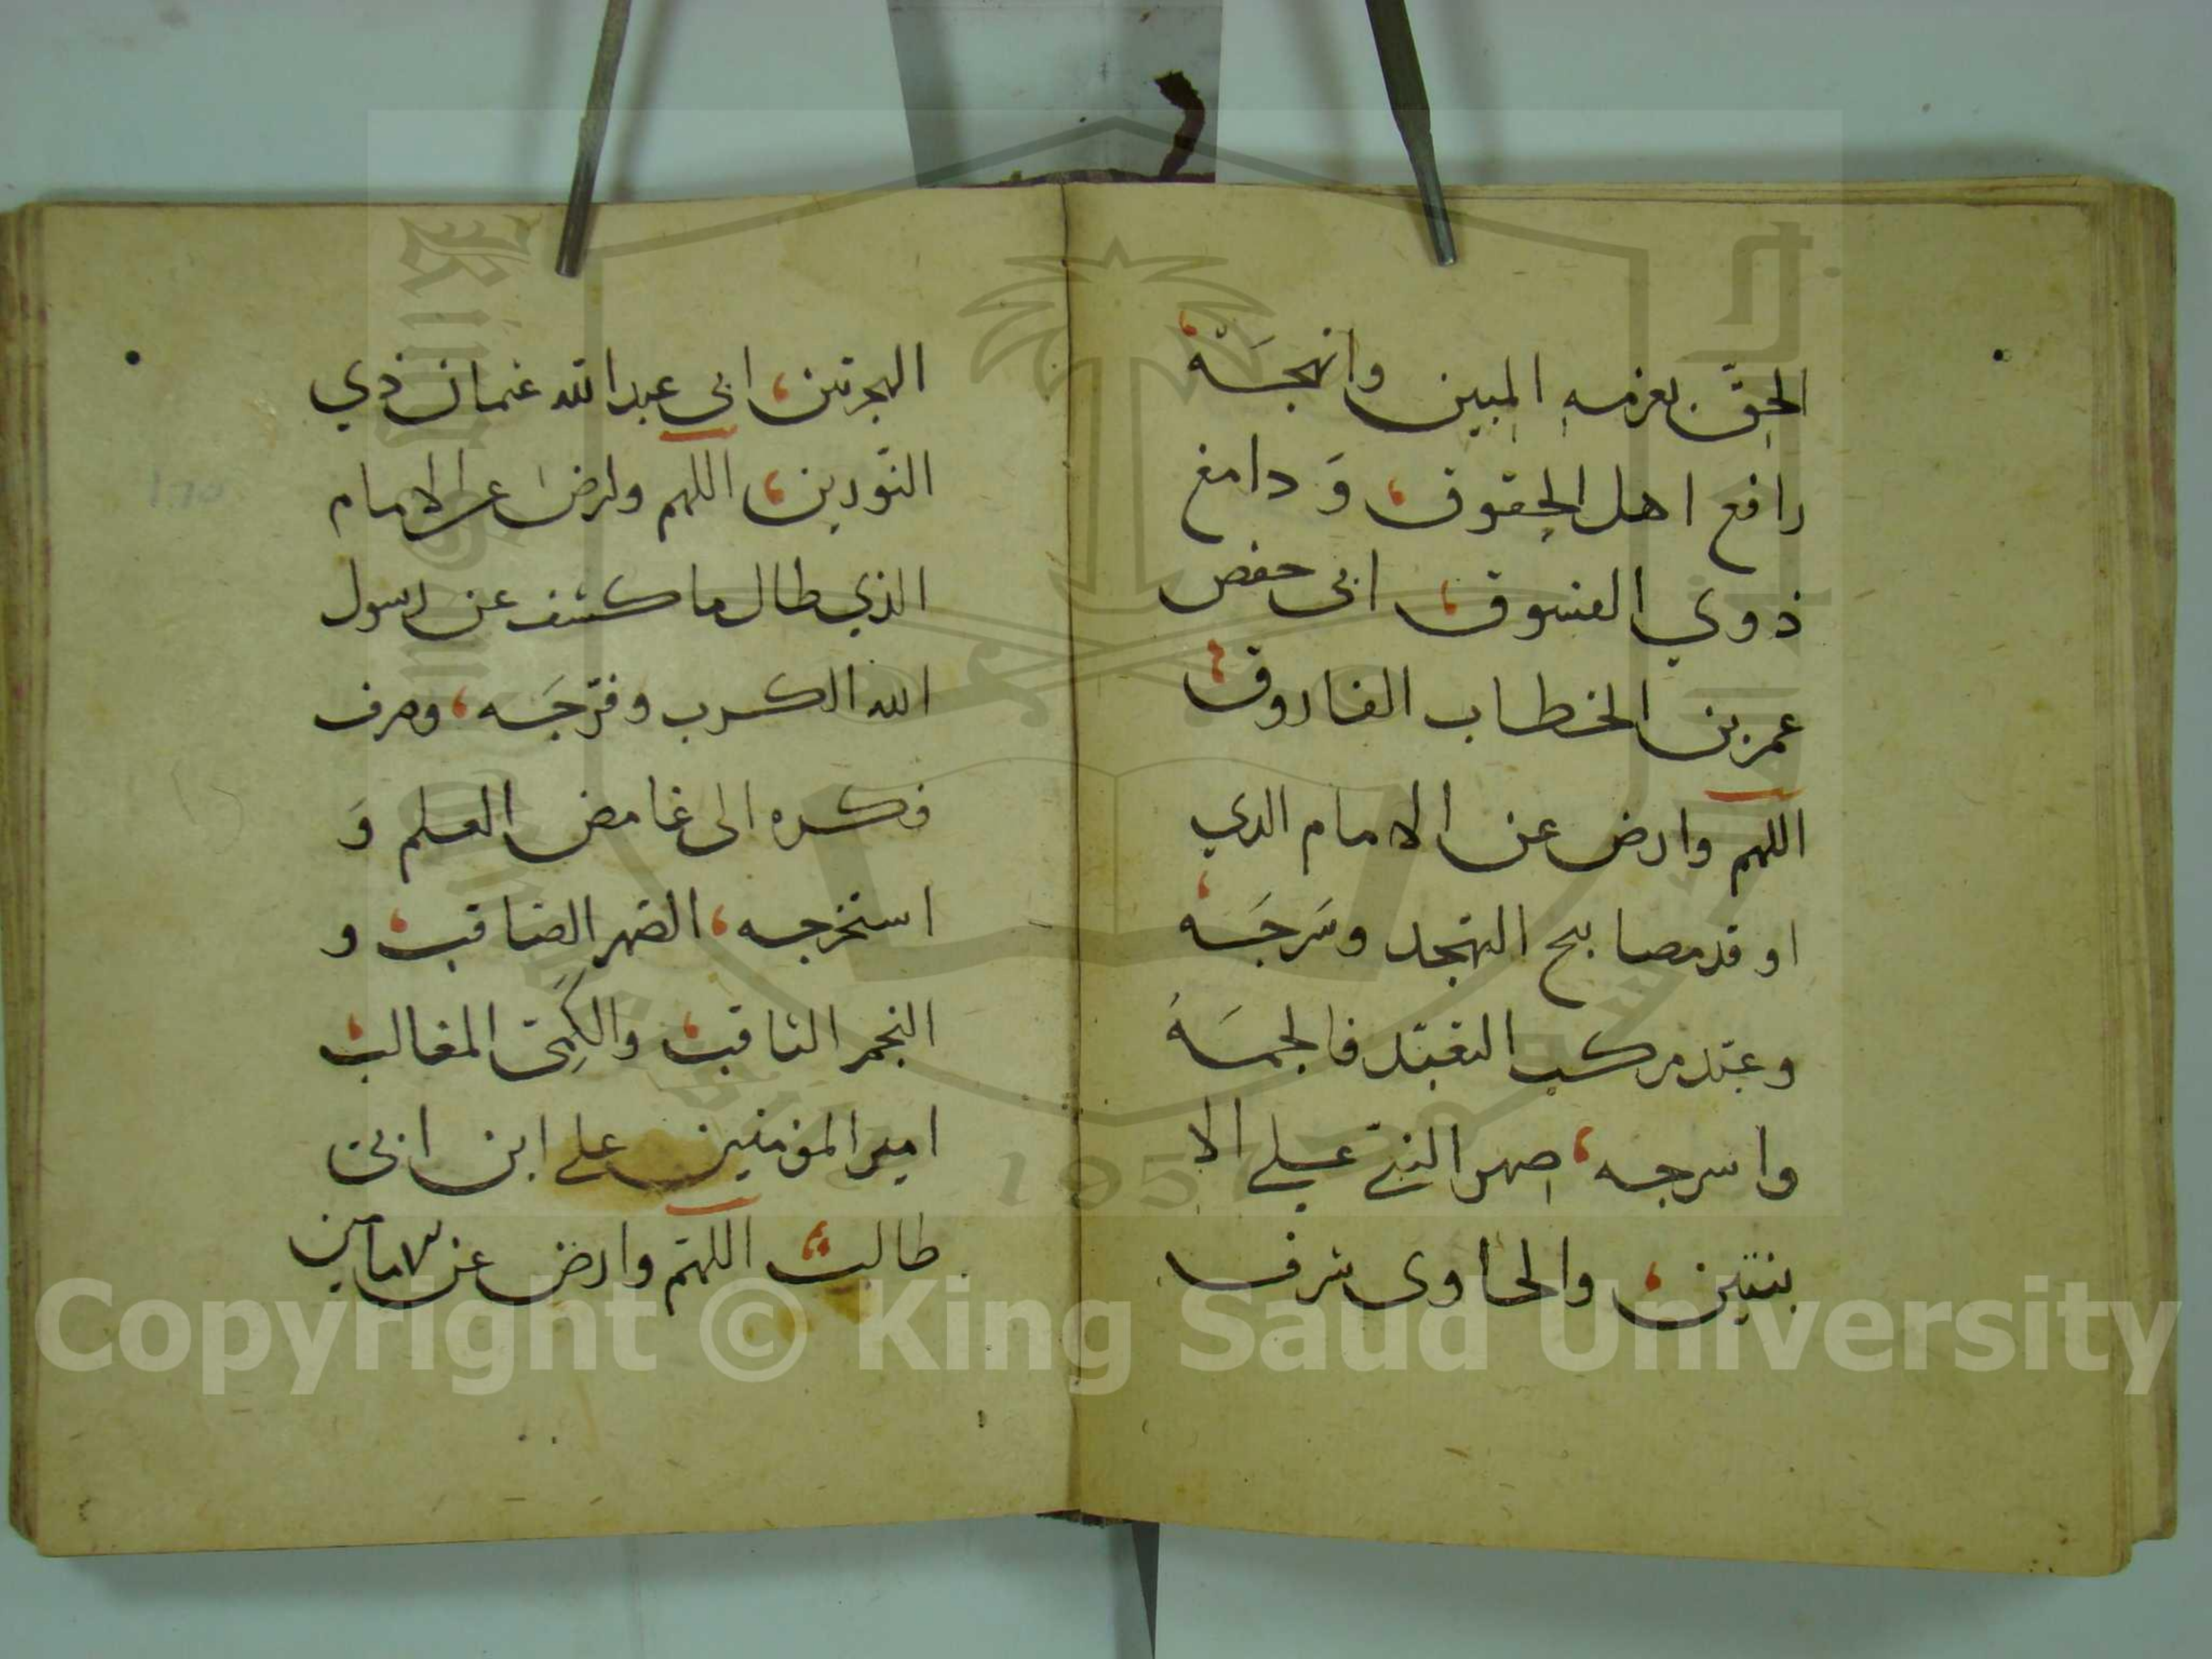 الحق بعزمه المبين وانهجَه
رافع اهل الحقوق، وَ دامغ
ذوي الفسوق، ابى حفص
عمر بن الخطاب الفاروق
اللهم وارض عن الامام الدي
اوقد مصابيح التهجد وسَرجَه
وعبّد مركب التعبّد فالجمَهُ
واسرجه، صهر النبى على الا
بنتين، والحاوى شرف
الهجرتين، ابى عبد الله عثمان ذي
النّورين، اللهم وارض عن الامام
الذي طال ما كشف عن رسول
الله الكرب وفرّجَه، وصرف
فكره الى غامض العلم وَ
استخرجه، الصهر الصاقب، و
النجم الثاقب، والكِمَى المغالب
امير المؤمنين على ابن ابى
طالب اللهّم وارض عن
Copyright © King Saud University
1957